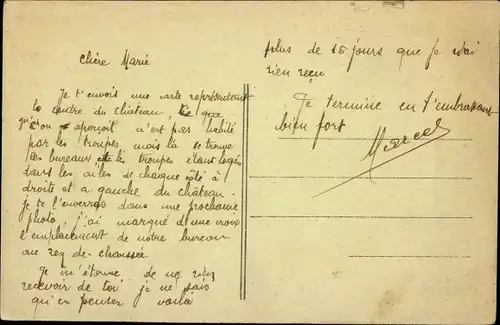 chère Marie
Je t'envois une carte représentant
le centre du château. Ce que
qu'on aperçoit n'est pas habité
par les troupes, mais là se trouve
les bureaux les troupes étant logés
dans les ailes de chaque côté à
droite et a gauche du château.
je te l'enverrai dans une prochaine
photo, j'ai marqué d'une croix
l'emplacement de notre bureau
au rez de chaussée
Je m'étonne de ne rien
recevoir de toi je ne sais
qu'en penser voilà
plus de 15 jours que je n'ai
rien reçu
Je termine en t'embrassant
bien fort
Marcel